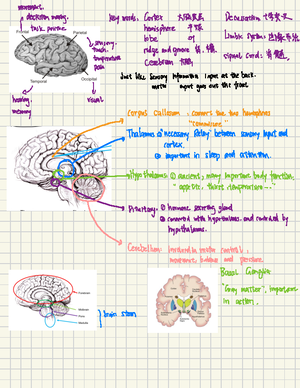 movement.
decision making.
task, posture.
Frontal
Parietal
sensory.
touch.
temperature
pain
Temporal
Occipital
hearing.
memory
visual
key words: Cortex 大脑皮层
hemisphere 半球
lobe 叶
ridge and groove
Cerebrum 大脑
Decussation
Limbic System:
spinal cord: 脊髓
Just like sensory information input at the back.
motor input goes out the front.
Corpus Callosum: connects the two hemispheres
Thalamus: ① necessary Relay between sensory input and
cortex.
② important in sleep and attention.
Hypothalamus: ① ancient, many important body function.
appetite, thirst temperature
Pituitary: ① hormone secreting gland
② connected with hypothalamus and controled by
hypothalamus.
Cerebellum: involved in motor control,
movement, balance and posture.
brain stem
Basal Ganglia
"Grey matter", important
in action.